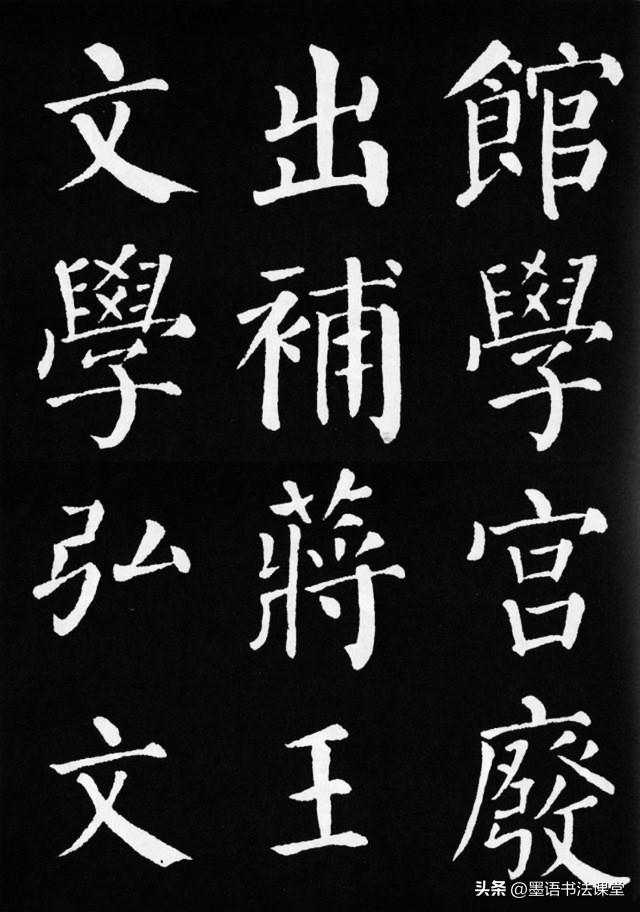 館學宮廢
出補蔣王
文學弘文
头条 @墨语书法课堂